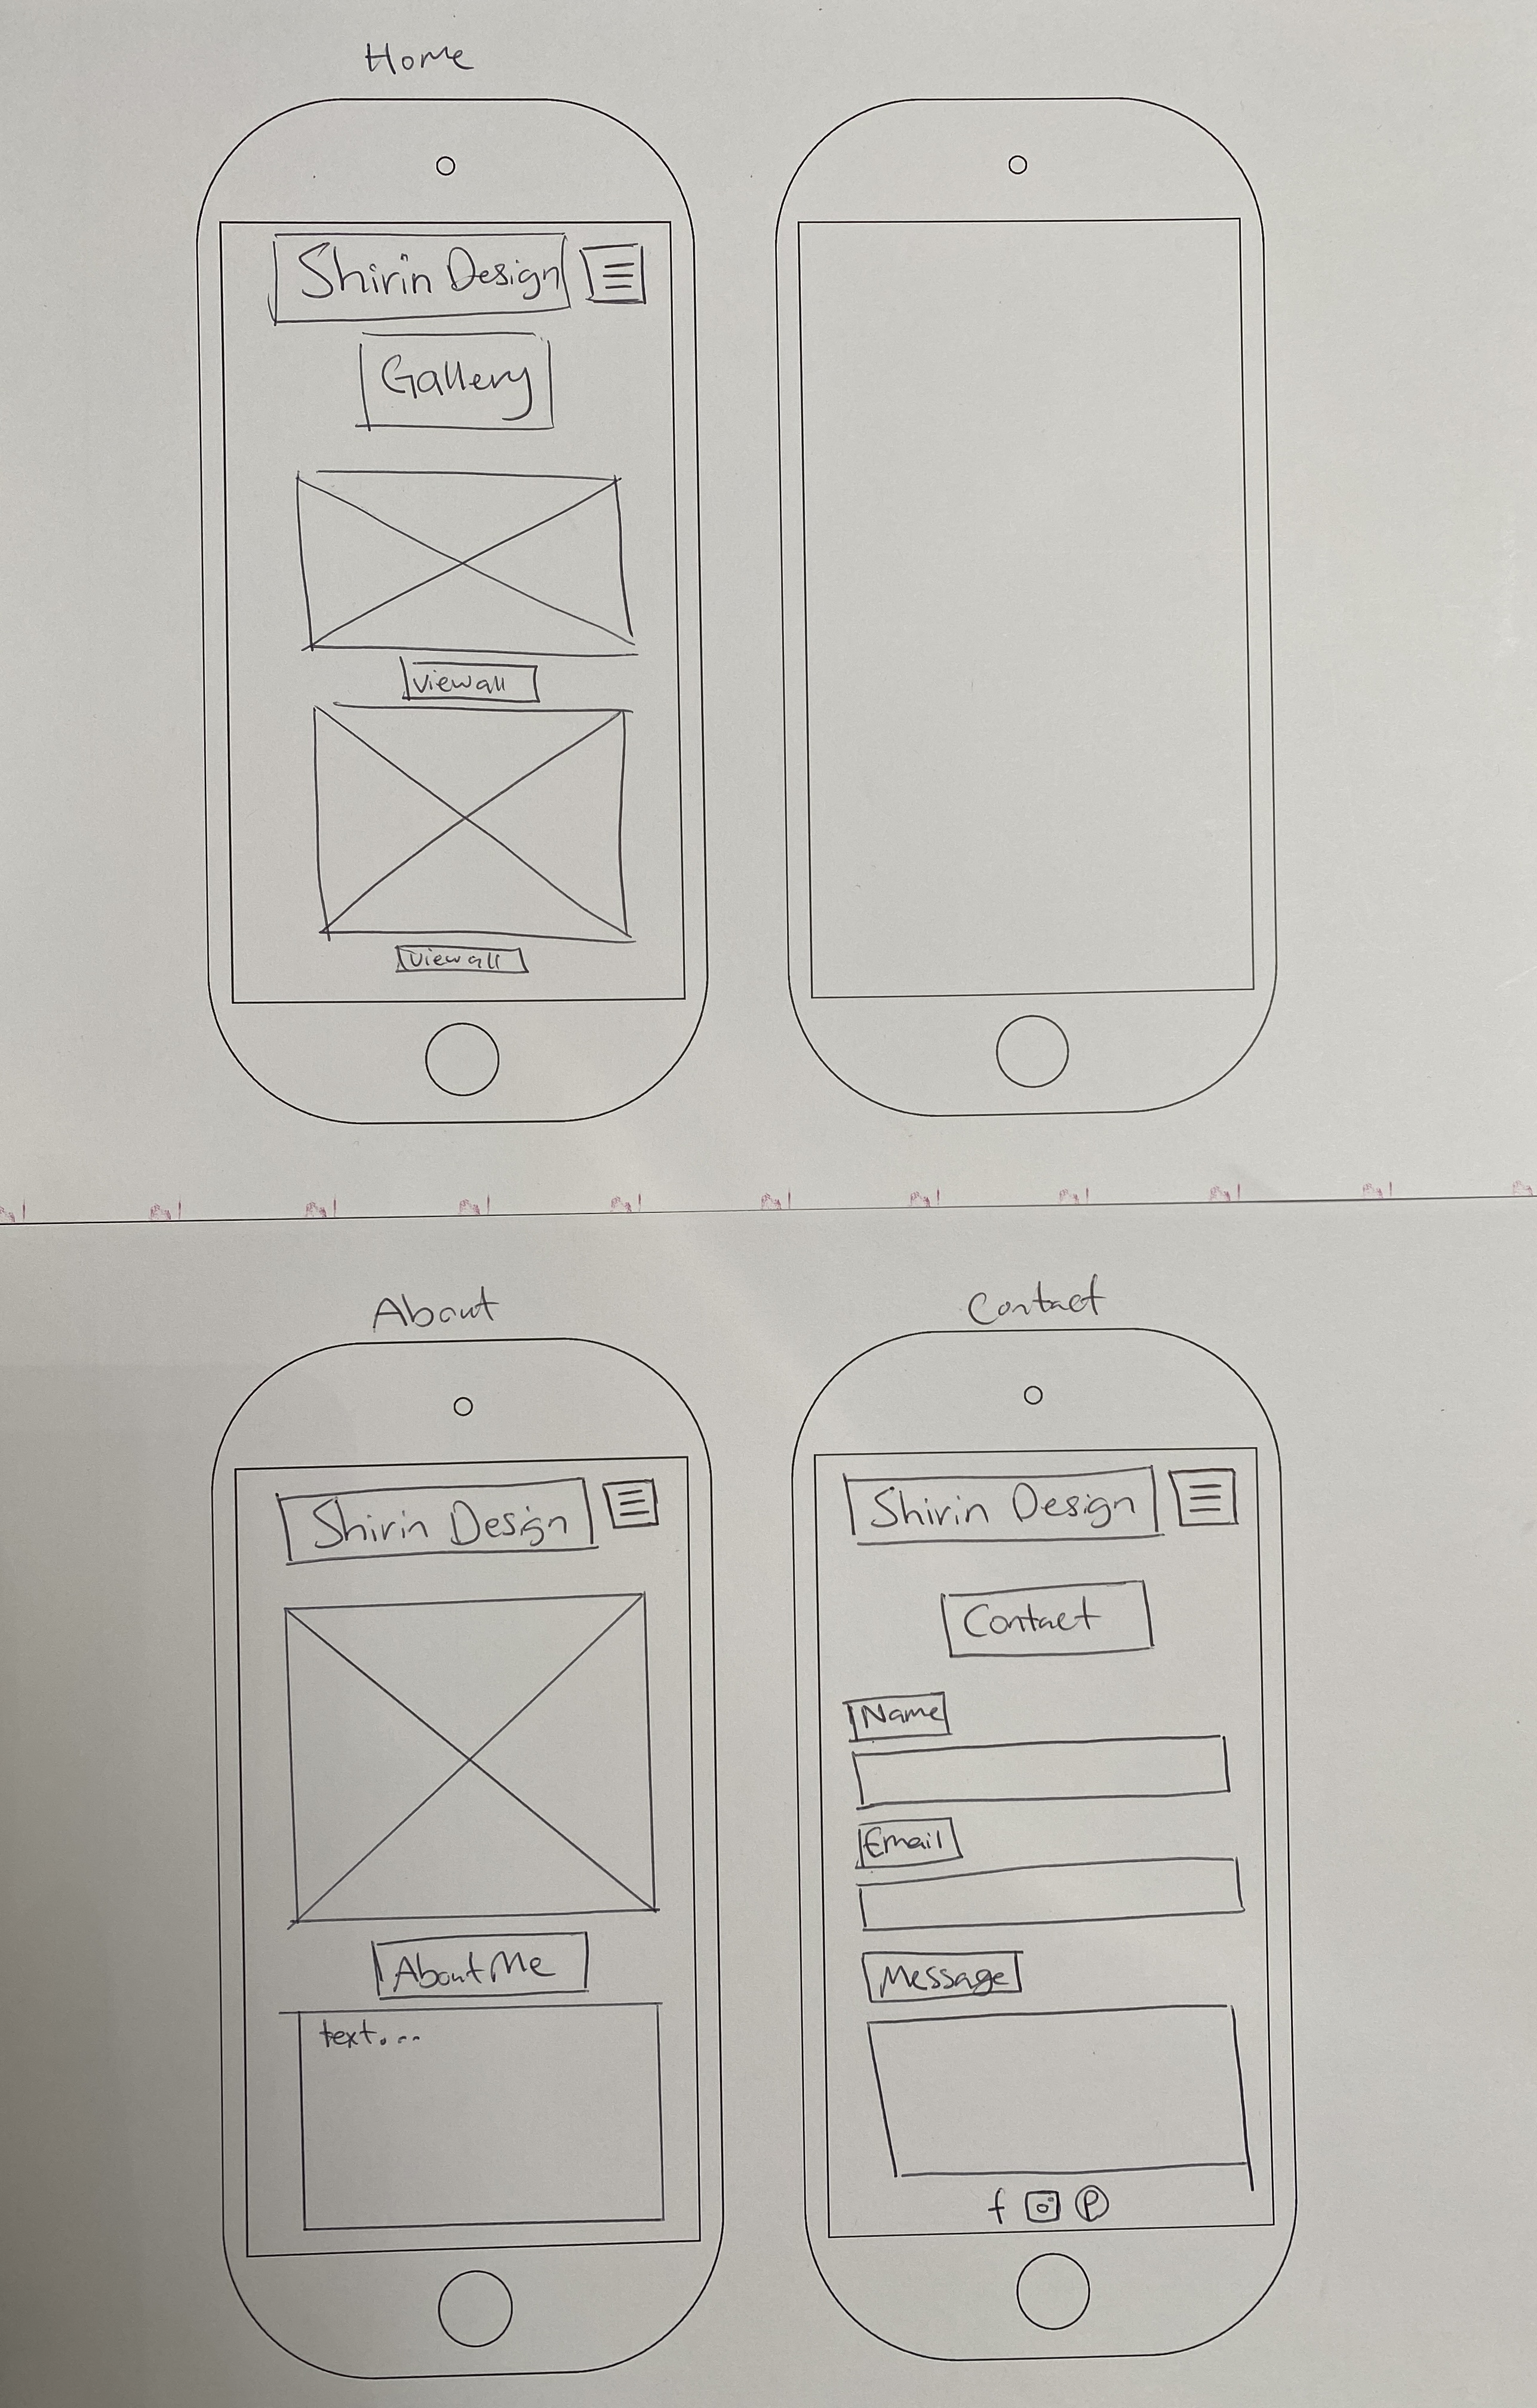 Home
Shirin Design
Gallery
view all
view all
About
Shirin Design
About Me
text...
Contact
Shirin Design
Contact
Name
Email
Message
f